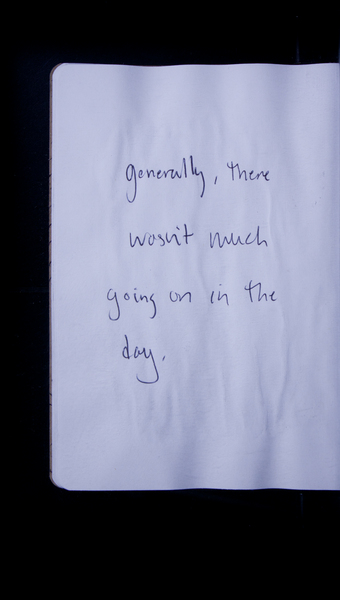 generally, there
wasn't much
going on in the
day.